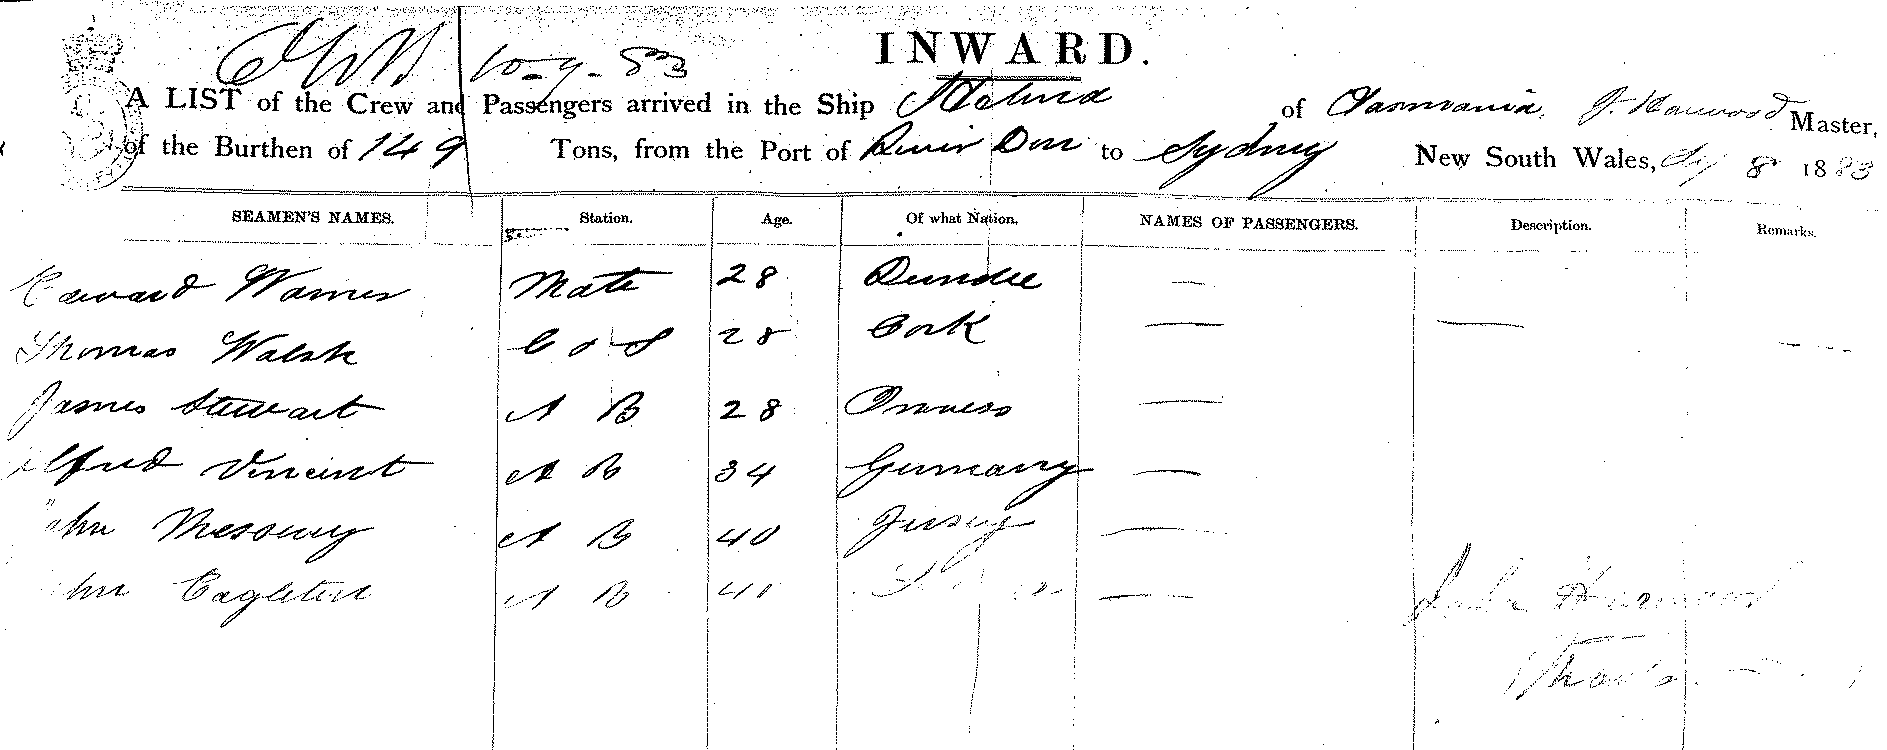 10-9-83
INWARD.
A LIST of the Crew and Passengers arrived in the Ship of Tasmania, J. Harwood Master,
of the Burthen of 149 Tons, from the Port of River Don to Sydney New South Wales, 8 1883
SEAMEN'S NAMES. Station. Age. Of what Nation. NAMES OF PASSENGERS. Description. Remarks.
Edward Warner Mate 28 Dundee —
Thomas Walsh C & S 28 Cork — — —
James Stewart A B 28 —
Alfred Vincent A B 34 Germany —
John A B 40 Jersey —
John Eagleton A B 40 —
John Harwood